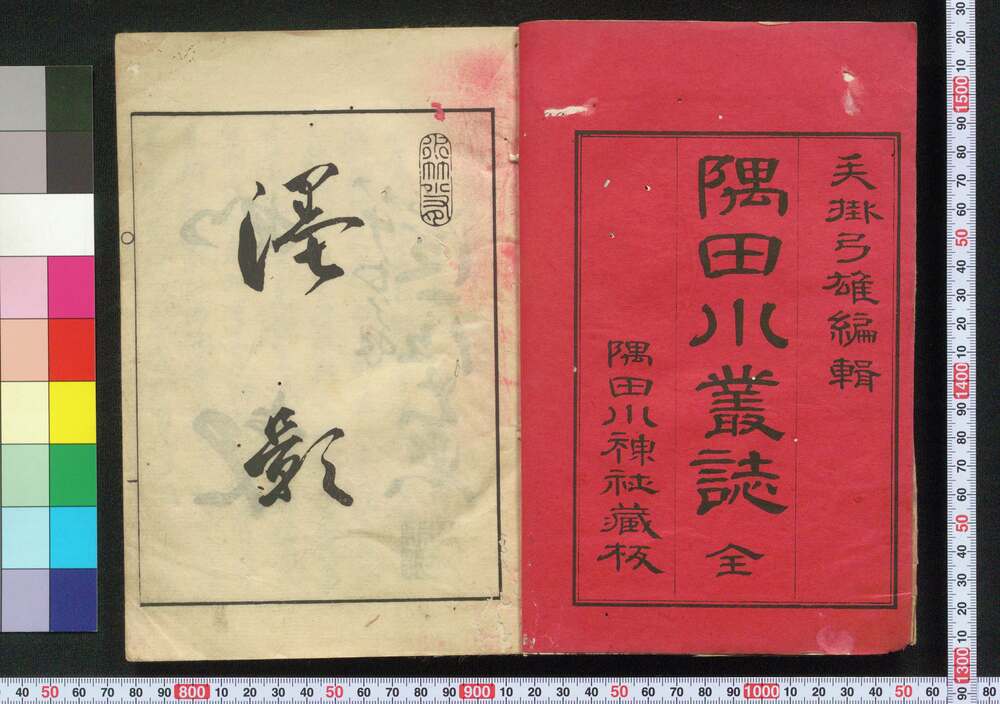 矢掛弓雄編輯
隅田川叢誌 全
隅田川神社藏板
濹影
30 20 10 1500 90 80 70 60 50 40 30 20 10 1400 90 80 70 60 50 40 30 20 10 1300 90
40 50 60 70 80 90 800 10 20 30 40 50 60 70 80 90 900 10 20 30 40 50 60 70 80 90 1000 10 20 30 40 50 60 70 80